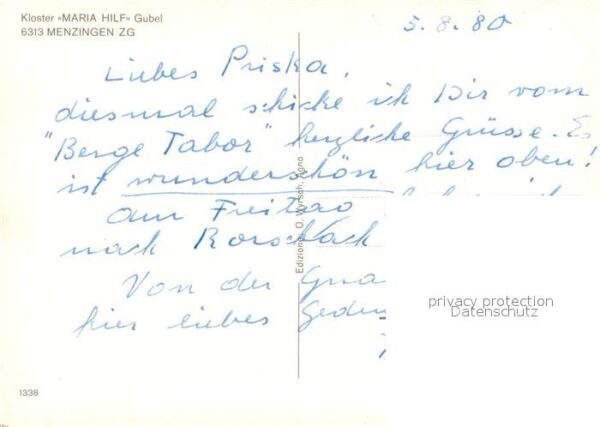 Kloster «MARIA HILF» Gubel
6313 MENZINGEN ZG
5.8.80
Liebes Priska,
diesmal schicke ich Dir vom
"Berge Tabor" herzliche Grüsse. Es
ist wunderschön hier oben!
Am Freitag
nach Rorschach
Von der Gna
hier liebes Geden
Edizione: O. Wyrsch, Agno
privacy protection
Datenschutz
1338